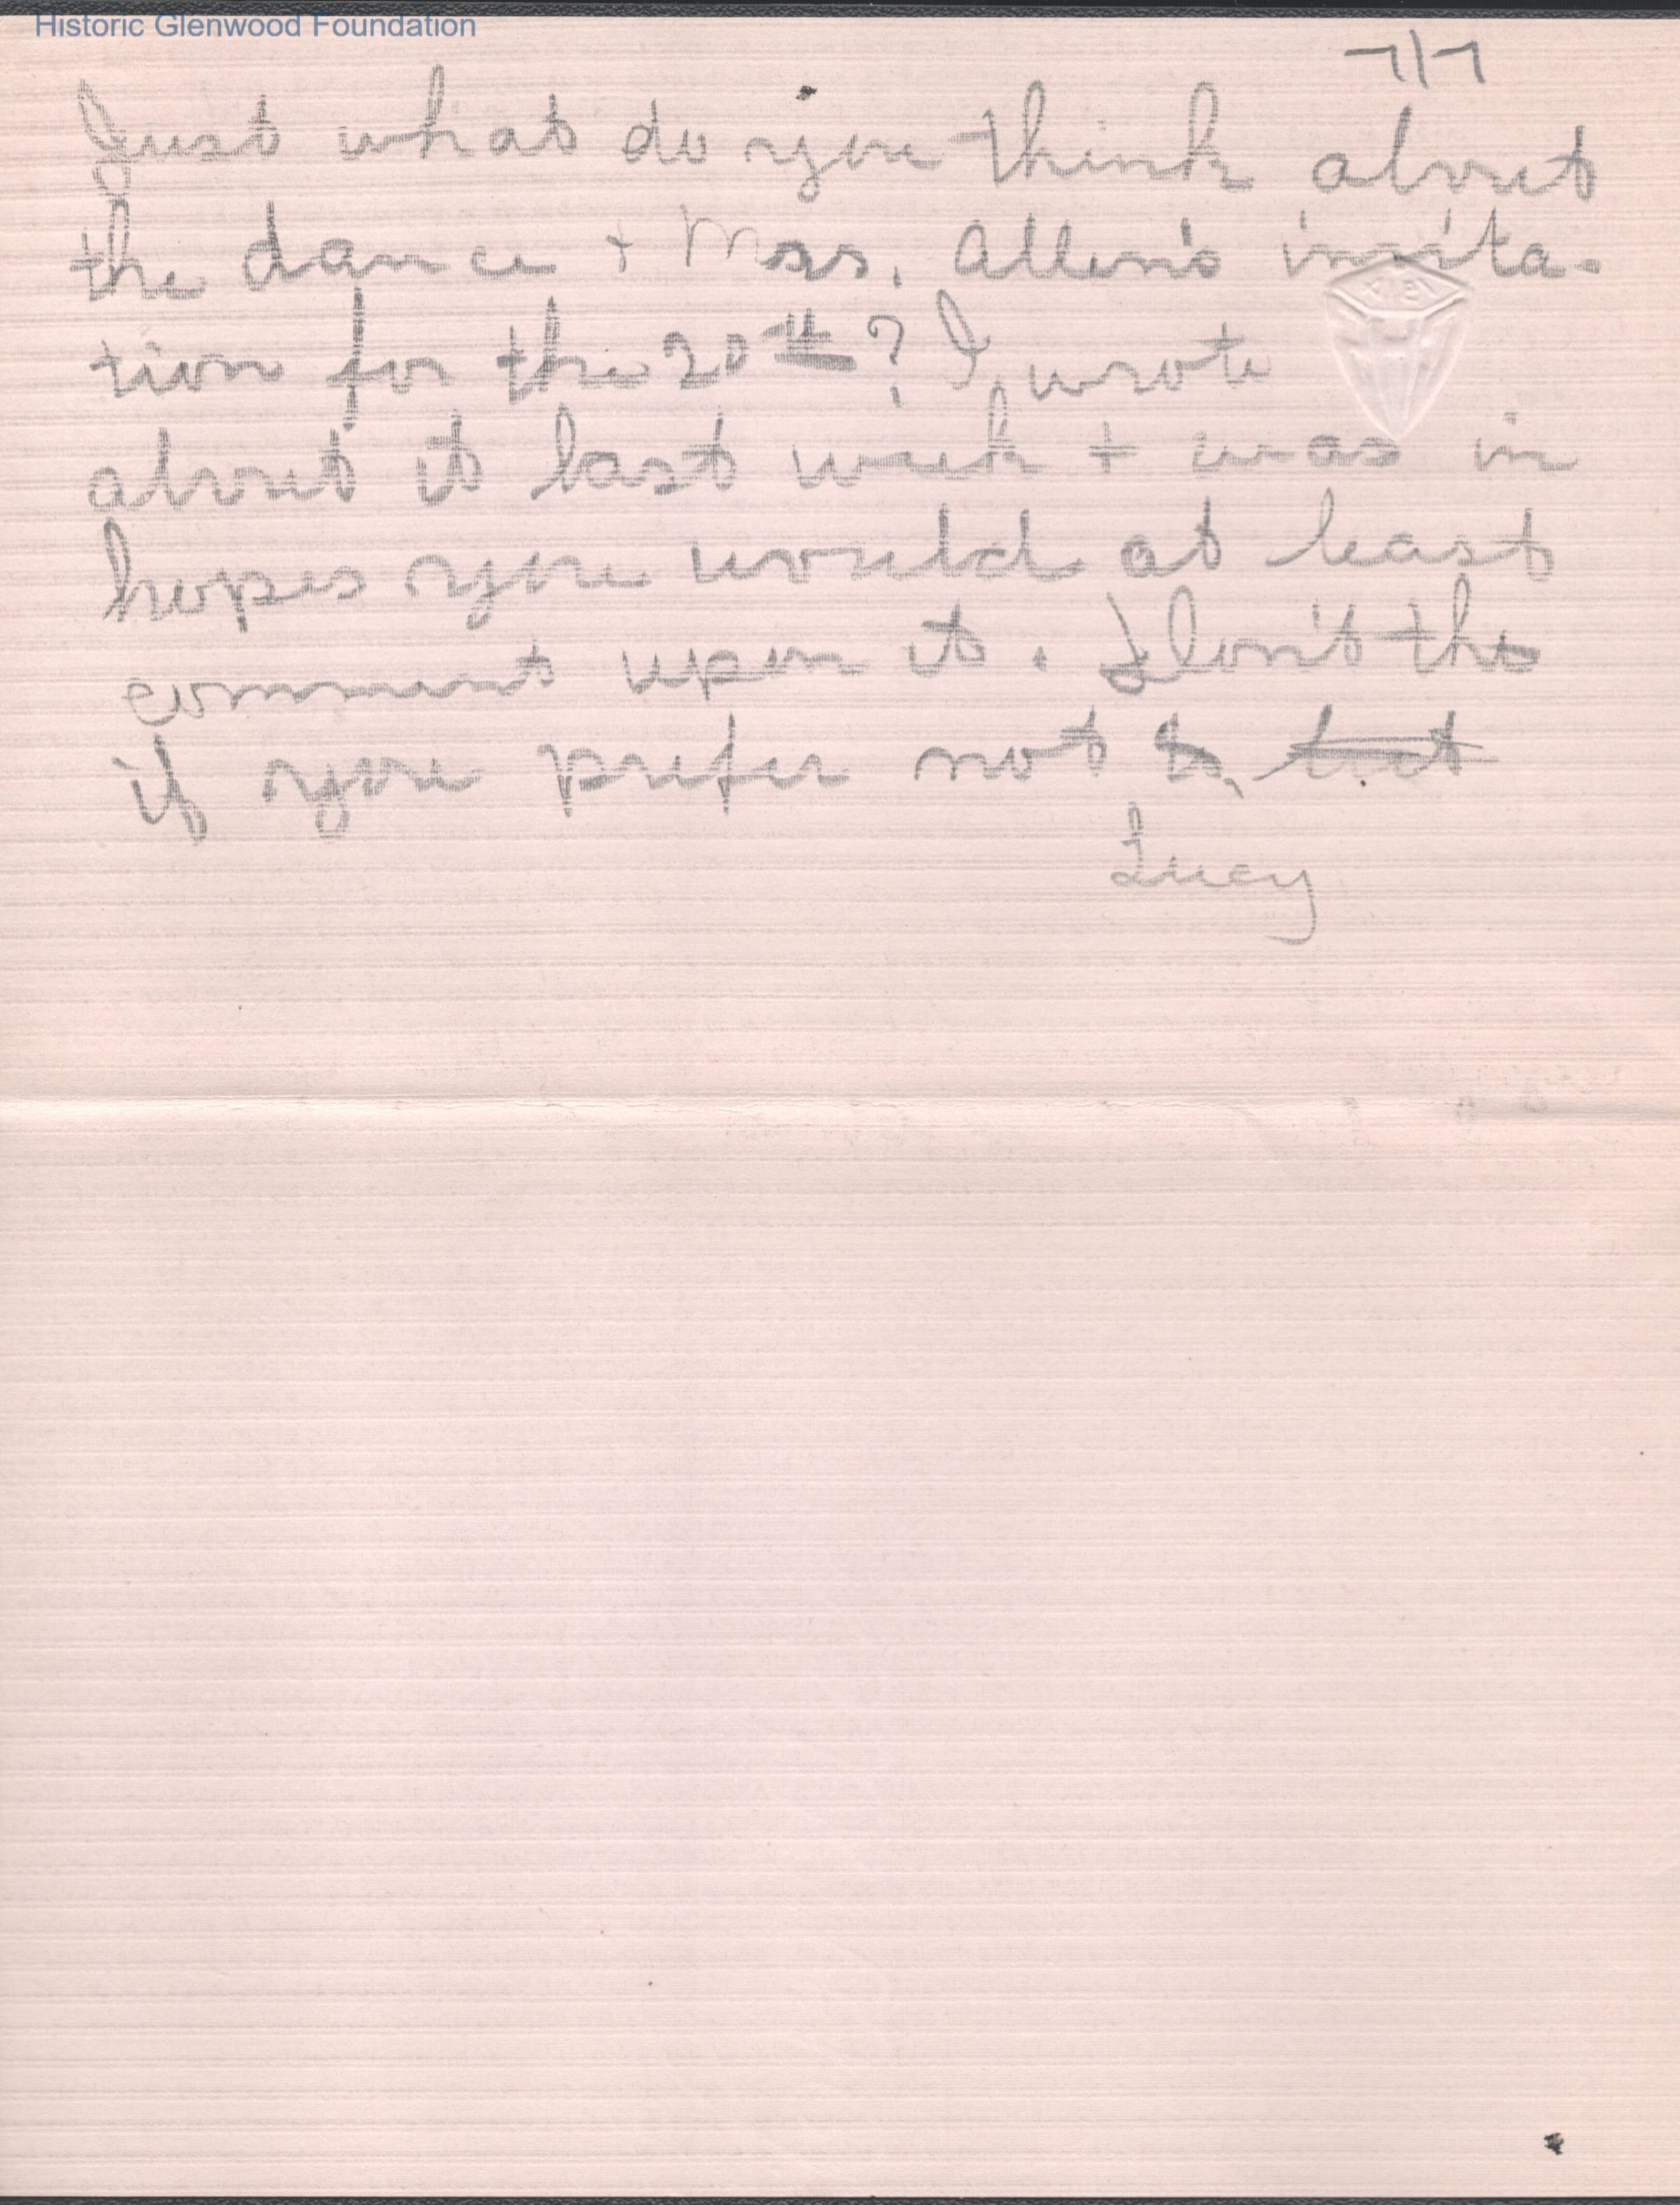 Historic Glenwood Foundation
7/7
Just what do you think about
the dance + Mrs. Allen's invita-
tion for the 20th? I wrote
about it last week + was in
hopes you would at least
comment upon it. Don't tho
if you prefer not to, but
Lucy